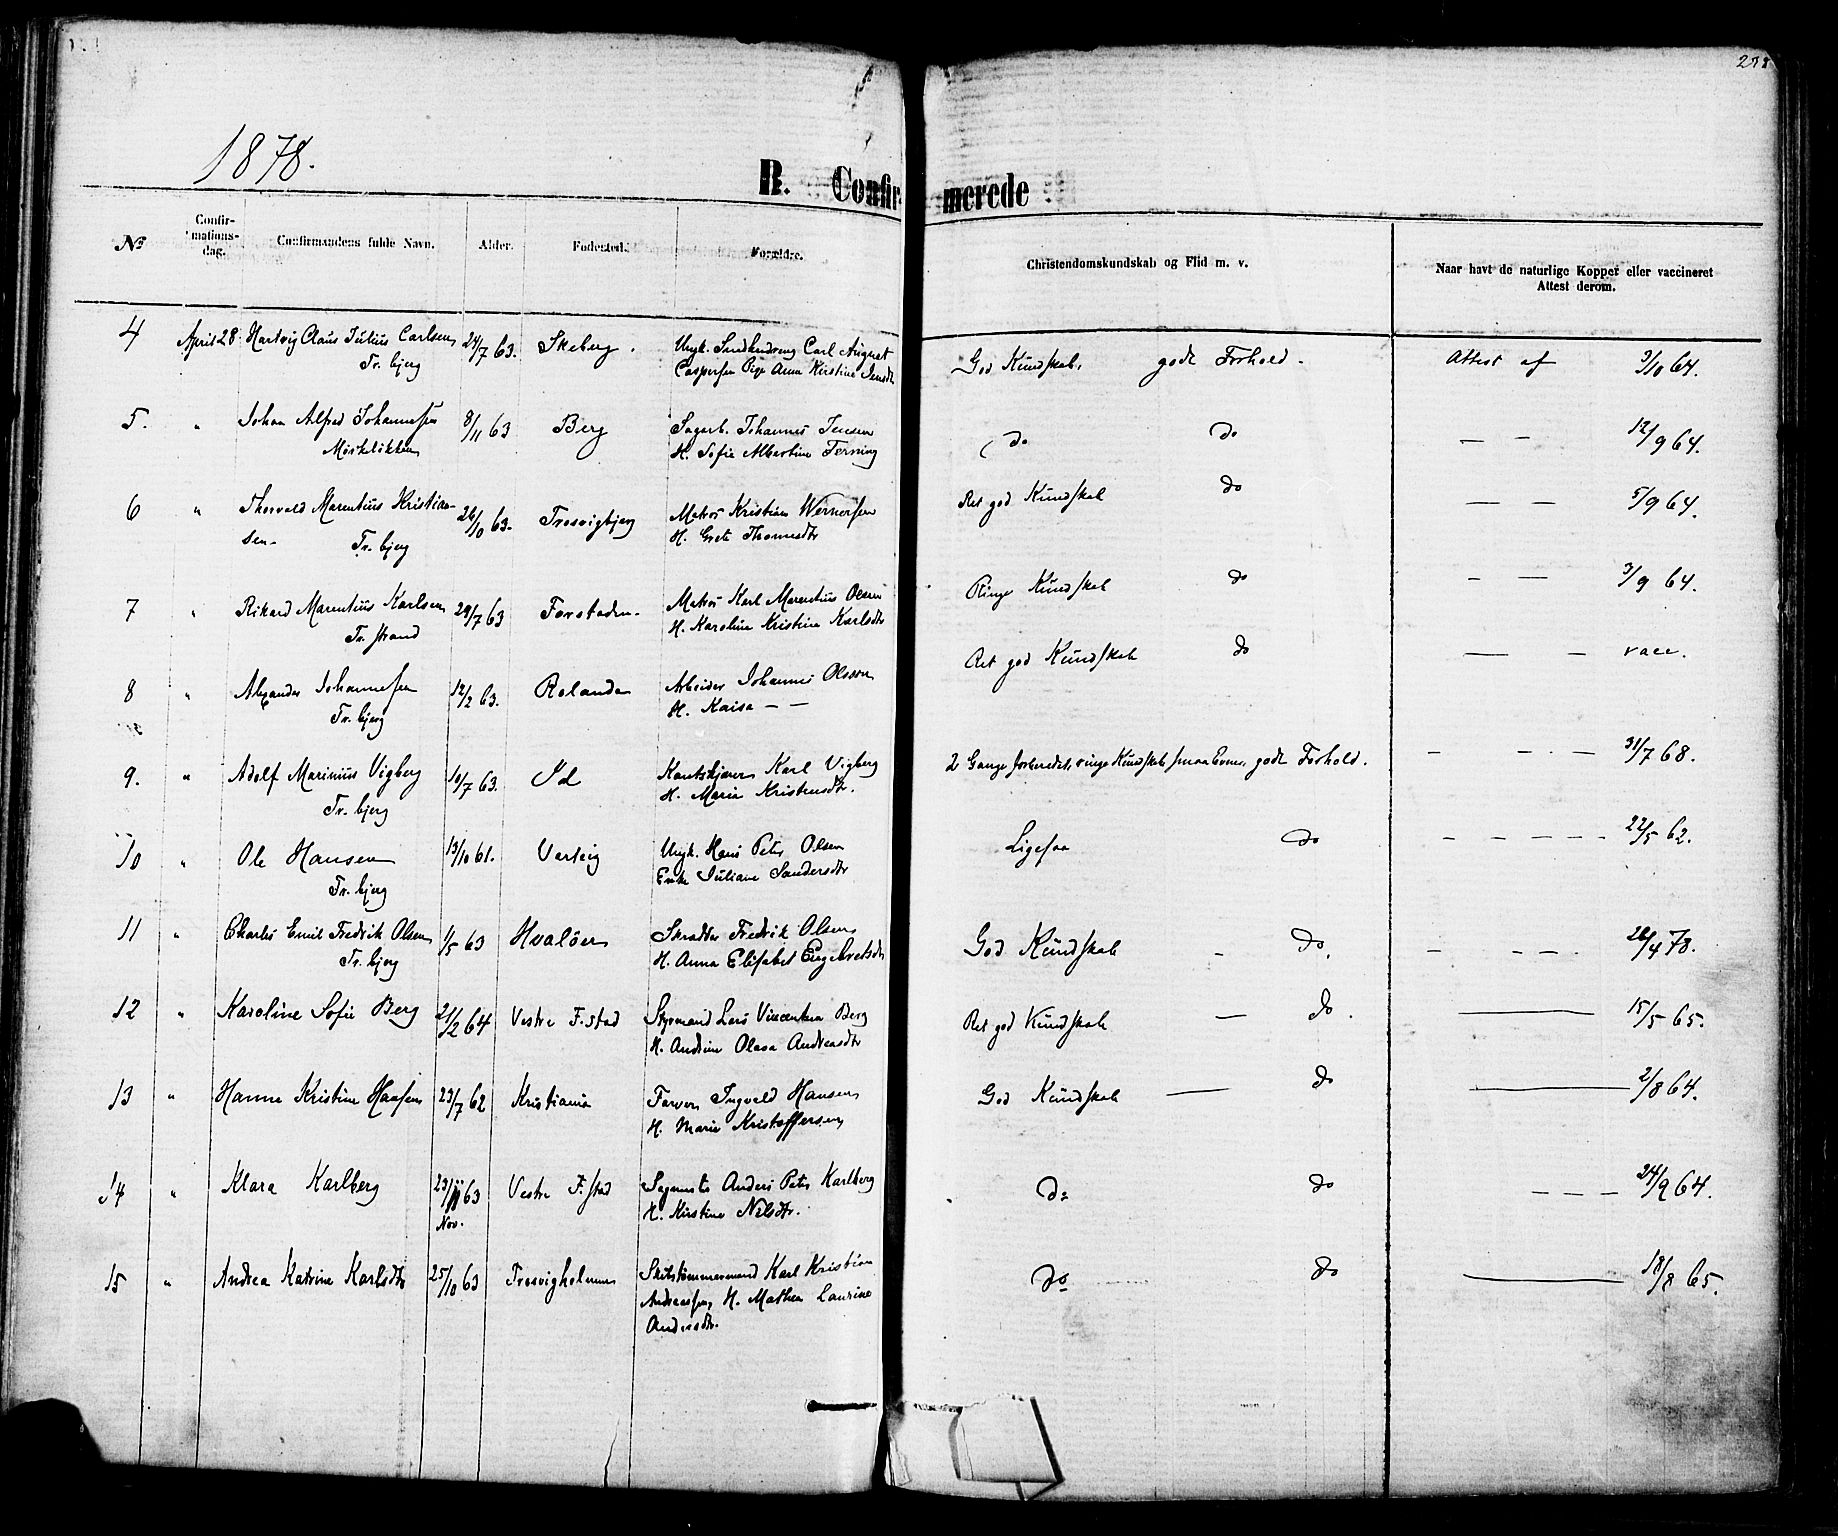 1878.
B. Confirmerede
№ Confirmationsdag. Confirmandens fulde Navn. Alder. Fodested. Forældre. Christendomskundskab og Flid m. v. Naar havt de naturlige Kopper eller vaccineret Attest derom.
4 April 28 Hartvig Claus Julius Carlsen 24/7 63. Skeberg. Ungk. Carl August God Kundskab, godt Forhold. Attest af 3/10 64.
Tr. bjerg Caspersen Pige Anna Kirstine Jensdtr
5. " Johan Alfred Johannesen 8/11 63 Berg Sagarb. Johannes Jensen do do — — 12/9 64.
H. Sofie Albertine Ferning
6 " Thorvald Marentius Kristian- 26/10 63. Trosvigbjerg Matros Kristian Wernersen Ret god Kundskab do — — 5/9 64.
sen- Tr. bjerg H. Grete Thomesdtr
7 " Rikard Marentius Karlsen 29/7 63 Forstaden- Matros Karl Marentius Olsen Ringe Kundskab do - — 3/9 64.
Tr. strand H. Karoline Kristine Karlsdtr
8 " Alexander Johannesen 12/2 63. Rolandsø Arbeider Johannes Olsson Ret god Kundskab do — – vacc.
Tr. bjerg H. Kaisa — —
9. " Adolf Marinius Vigberg 10/7 63. Id Karl Vigberg 2 Gange forberedet, ringe Kundskab smaa Evner, godt Forhold. – – . — 31/7 68.
Tr. bjerg H. Maria Kristensdtr.
10 " Ole Hansen 13/10 61. Varteig Ungk. Hans Peter Olsen Ligesaa do – – – – – 22/5 62.
Tr. bjerg Enke Juliane Sandersdtr
11 " Charles Emil Fredrik Olsen 1/5 63 Hvaløer Skrædder Fredrik Olsen God Kundskab – do. – – – . 26/4 78.
Tr. bjerg H. Anna Elisabet Engebretsdtr
12 " Karoline Sofie Berg 21/2 64 Vestre F.stad Styrmand Lars Berg Ret god Kundskab — do. — 15/5 65.
H. Andrine Olava Andreasdtr
13 " Hanna Kristine Hansen 23/7 62 Kristiania Farver Ingvald Hansen God Kundskab — do — 2/8 64.
H. Marie Kristoffersen
14 " Klara Karlberg 23/11 63 Vestre F.stad Sagmester Anders Peter Karlberg do do – – – 24/9 64.
Nov. H. Kirstine Nilsdtr.
15 " Andrea Katrine Karlsdtr 25/10 63 Trosvigholmen Skibstømmermand Karl Kristian do do — 18/8 65.
Andreassen, H. Mathea Laurine
Andersdtr.